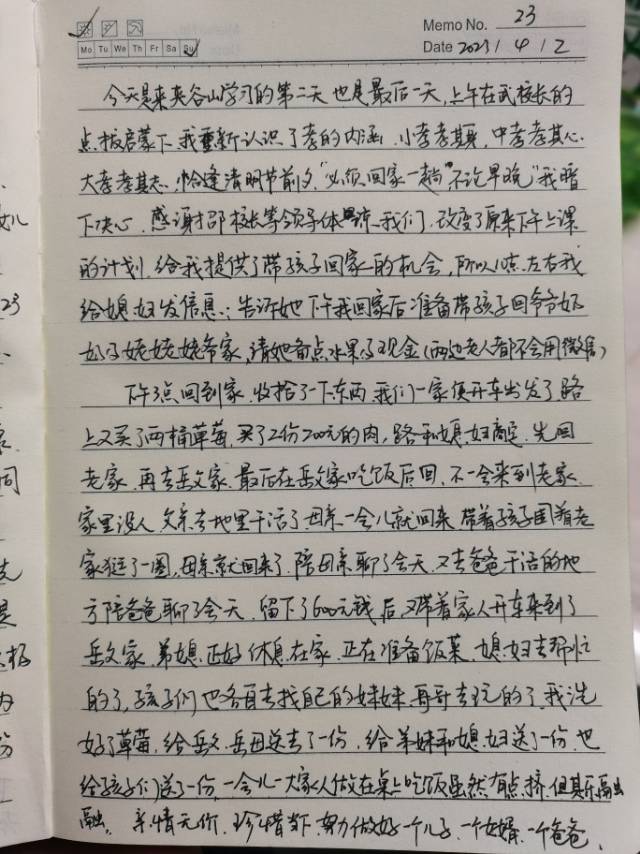 Memo No. 23
Mo Tu We Th Fr Sa Su
Date 2023 / 4 / 2
今天是来夹谷山学习的第二天也是最后一天,上午在武校长的
点拨启蒙下我重新认识了孝的内涵,小孝孝其身,中孝孝其心,
大孝孝其志,恰逢清明节前夕,"必须回家一趟"不论早晚"我暗
下决心,感谢 校长等领导体 我们,改变了原来下午上课
的计划,给我提供了带孩子回家的机会,所以10点左右我
给媳妇发信息:告诉她下午我回家后准备带孩子回爷爷奶
奶与姥姥姥爷家,请她备点水果与现金(两边老人都不会用微信)
下午3点回到家,收拾了一下东西,我们一家便开车出发了路
上又买了两桶草莓,买了2份200元的肉,路 和媳妇商定,先回
老家,再去岳父家,最后在岳父家吃饭后回,不一会来到老家,
家里没人,父亲去地里干活了母亲一会儿就回来,带着孩子围着老
家 了一圈,母亲就回来了,陪母亲聊了会天,又去爸爸干活的地
方陪爸爸聊了会天,留下了600元钱后又带着家人开车来到了
岳父家,弟媳正好休息在家,正在准备饭菜,媳妇去帮忙
的了,孩子们也各自去找自己的妹妹,哥哥去玩的了,我洗
好了草莓,给岳父、岳母送去了一份,给弟妹和媳妇送了一份,也
给孩子们送了一份,一会儿一大家人做在桌上吃饭虽然有点挤,但其乐融
融。亲情无价,珍惜当下,努力做好一个儿子,一个女婿,一个爸爸.